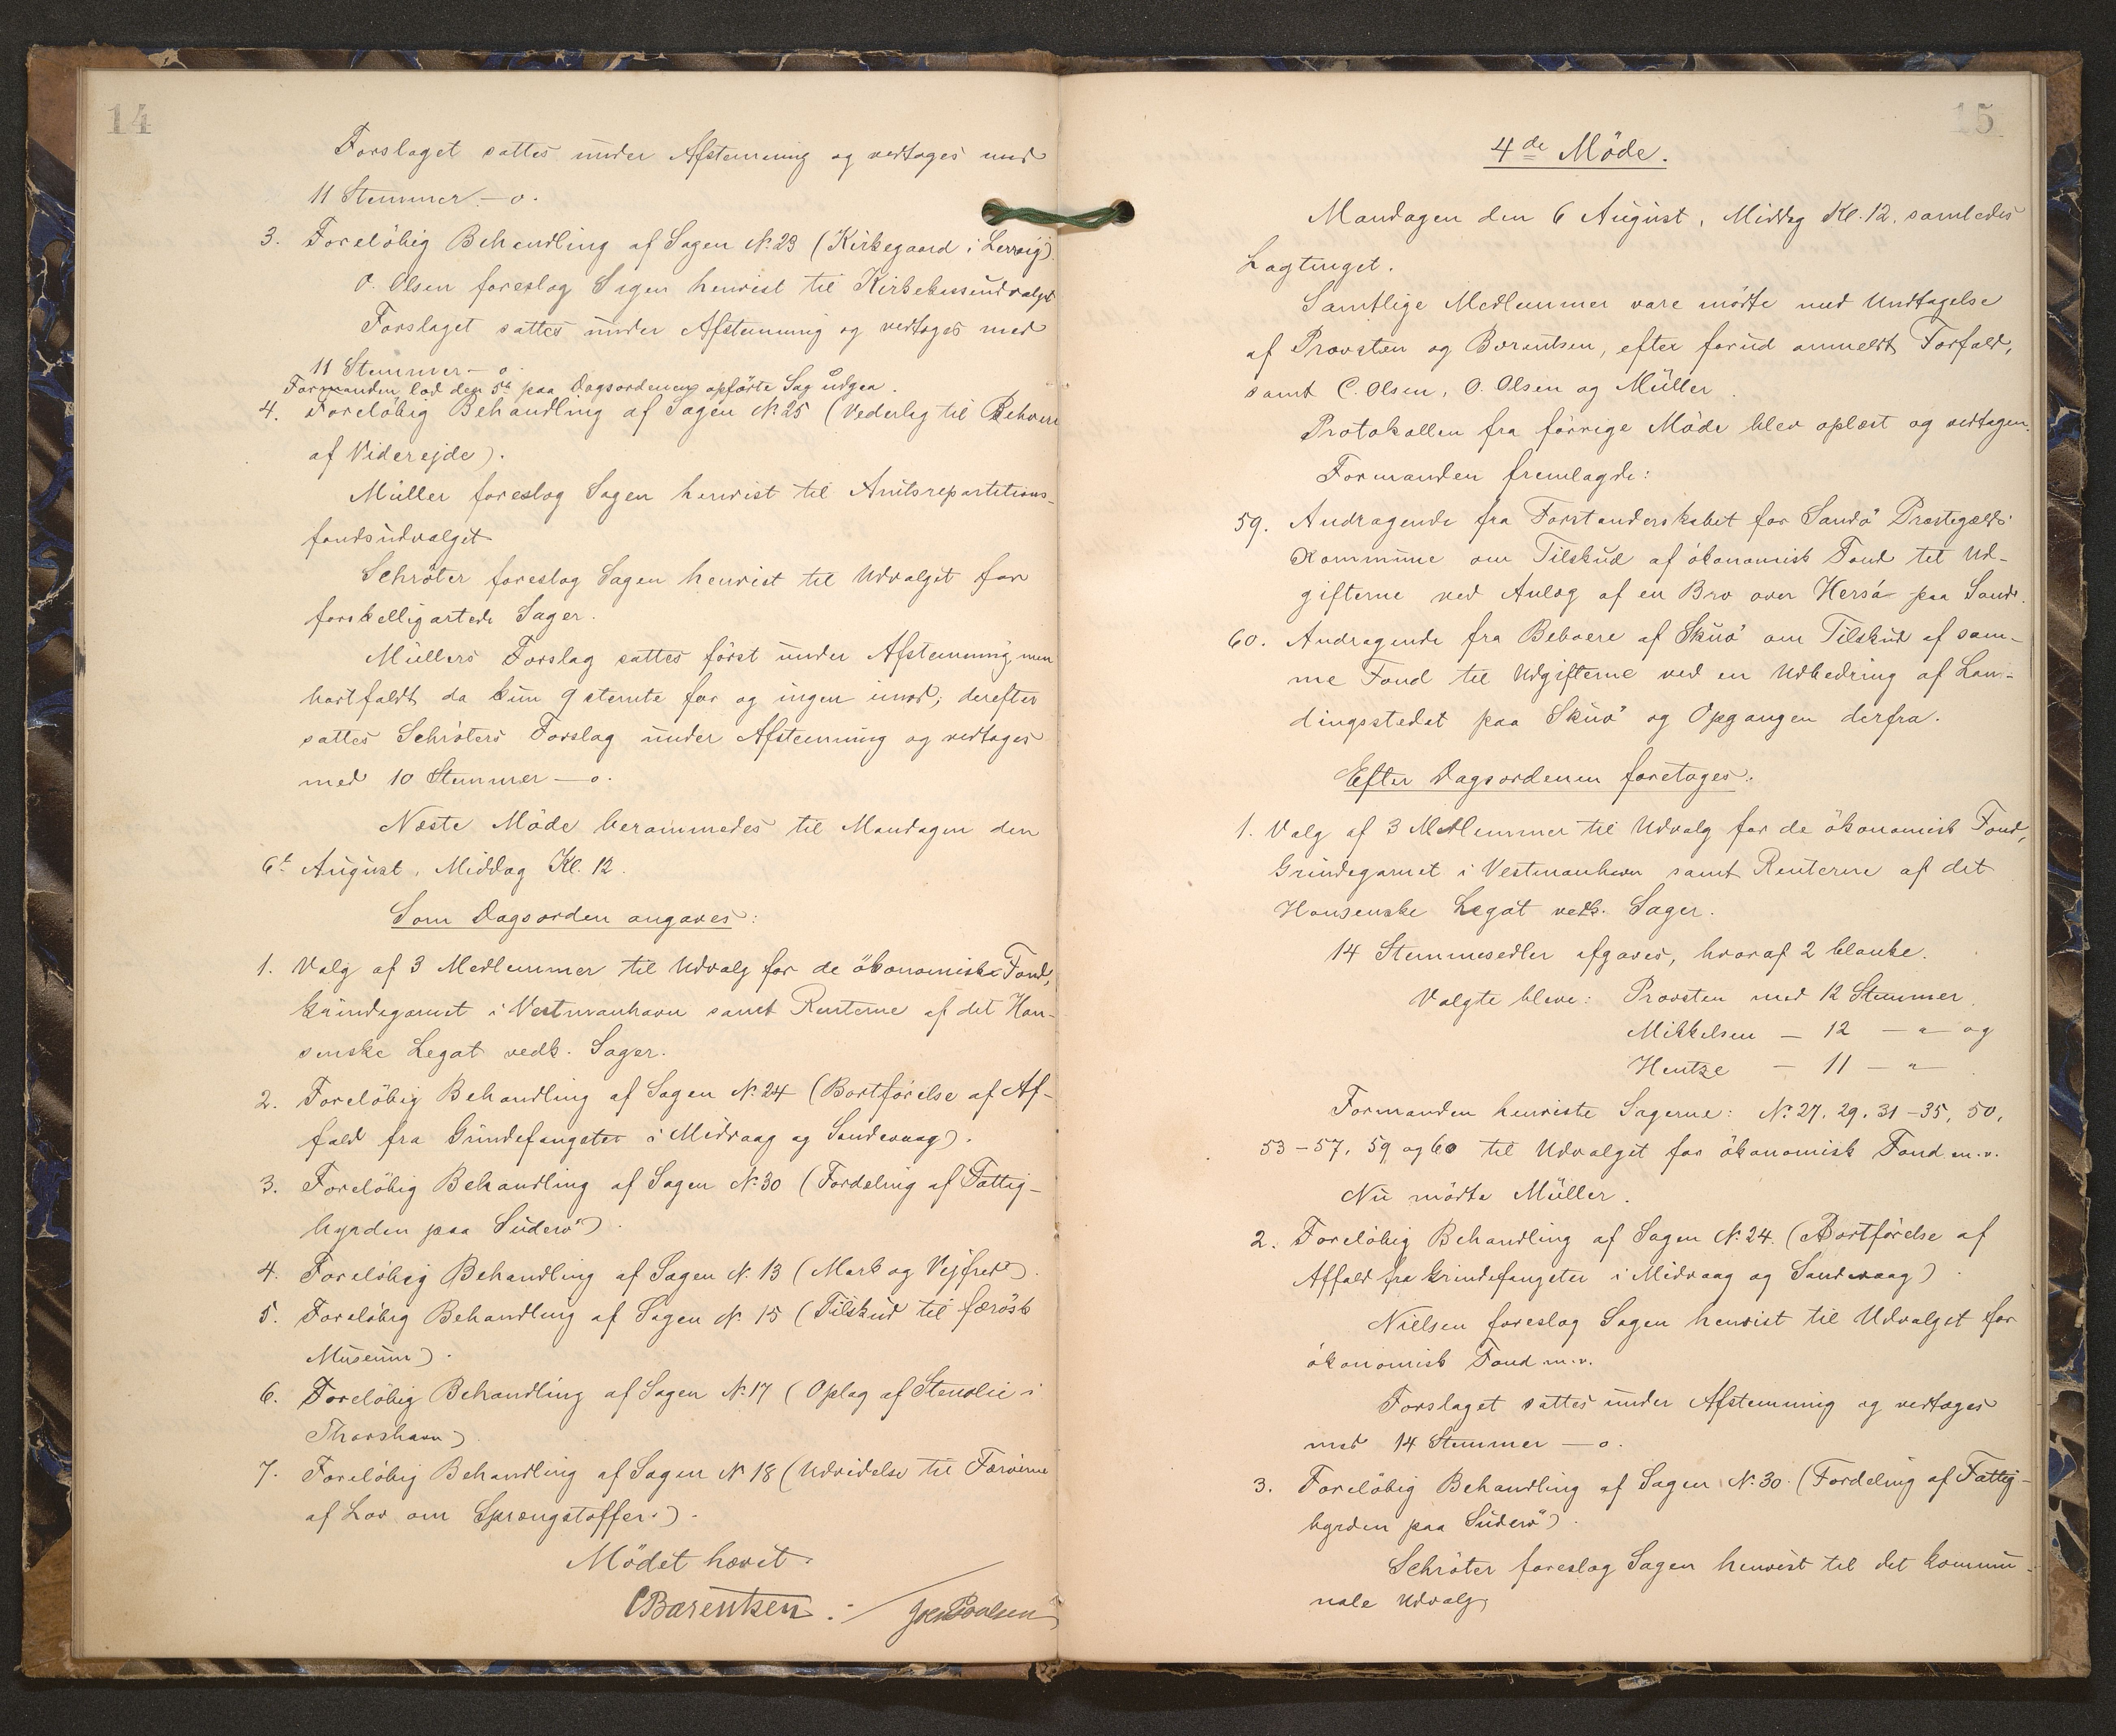 14
Forslaget sattes under Afstemning og vedtoges med
11 Stemmer – o.
3. Foreløbig Behandling af Sagen N. 23 (Kirkegaard i Lervig).
O. Olsen foreslog Sagen henvist til Kirkekasseudvalget
Forslaget sattes under Afstemning og vedtoges med
11 Stemmer – o.
Formanden lod den 5te paa Dagsordenen opførte Sag udgaa.
4. Foreløbig Behandling af Sagen N. 25 (Vederlag til Beboere
af Viderejde).
Müller foreslog Sagen henvist til Amtsrepartitions-
fondsudvalget
Schrøter foreslog Sagen henvist til Udvalget for
forskelligartede Sager.
Müllers Forslag sattes først under Afstemning, men
bortfaldt, da kun 9 stemte for og ingen imod; derefter
sattes Schrøters Forslag under Afstemning og vedtoges
med 10 Stemmer – o.
Næste Møde berammedes til Mandagen den
6t August, Middag Kl. 12.
Som Dagsorden angaves:
1. Valg af 3 Medlemmer til Udvalg for de økonomiske Fond,
Grindegarnet i Vestmanhavn samt Renterne af det Han-
senske Legat vedk. Sager.
2. Foreløbig Behandling af Sagen N. 24 (Bortførelse af Af-
fald fra Grindefangster i Midvaag og Sandevaag).
3. Foreløbig Behandling af Sagen N. 30 (Fordeling af Fattig-
byrden paa Suderø).
4. Foreløbig Behandling af Sagen N. 13 (Mark og Vejfred).
5. Foreløbig Behandling af Sagen N. 15 (Tilskud til færøsk
Museum).
6. Foreløbig Behandling af Sagen N. 17 (Oplag af Stenolie i
Thorshavn)
7. Foreløbig Behandling af Sagen N. 18 (Udvidelse til Færøerne
af Lov om Sprængstoffer.).
Mødet hævet.
C Bærentsen. Joen Poulsen
15
4de Møde.
Mandagen den 6 August, Middag Kl. 12. samledes
Lagtinget.
Samtlige Medlemmer vare mødte med Undtagelse
af Provsten og Bærentsen, efter forud anmeldt Forfald,
samt C. Olsen, O. Olsen og Müller.
Protokollen fra forrige Møde blev oplæst og vedtagen.
Formanden fremlagde:
59. Andragende fra Forstanderskabet for Sandø Præstegælds
Kommune om Tilskud af økonomisk Fond til Ud-
gifterne ved Anlæg af en Bro over Hersá paa Sand.
60. Andragende fra Beboere af Skuø om Tilskud af sam-
me Fond til Udgifterne ved en Udbedring af Lan-
dingsstedet paa Skuø og Opgangen derfra.
Efter Dagsordenen foretoges:
1. Valg af 3 Medlemmer til Udvalg for de økonomisk Fond,
Grindegarnet i Vestmanhavn samt Renterne af det
Hansenske Legat vedk. Sager.
14 Stemmesedler afgaves, hvoraf 2 blanke.
Valgte bleve: Provsten med 12 Stemmer
Mikkelsen – 12 – " – og
Hentze – 11 – " –
Formanden henviste Sagerne: N. 27, 29, 31–35, 50,
53–57, 59 og 60 til Udvalget for økonomisk Fond m.v.
Nu mødte Müller.
2. Foreløbig Behandling af Sagen N. 24. (Bortførelse af
Affald fra Grindefangster i Midvaag og Sandevaag)
Nielsen foreslog Sagen henvist til Udvalget for
økonomisk Fond m.v.
Forslaget sattes under Afstemning og vedtoges
med 14 Stemmer – o.
3. Foreløbig Behandling af Sagen N. 30. (Fordeling af Fattig-
byrden paa Suderø).
Schrøter foreslog Sagen henvist til det kommu-
nale Udvalg,